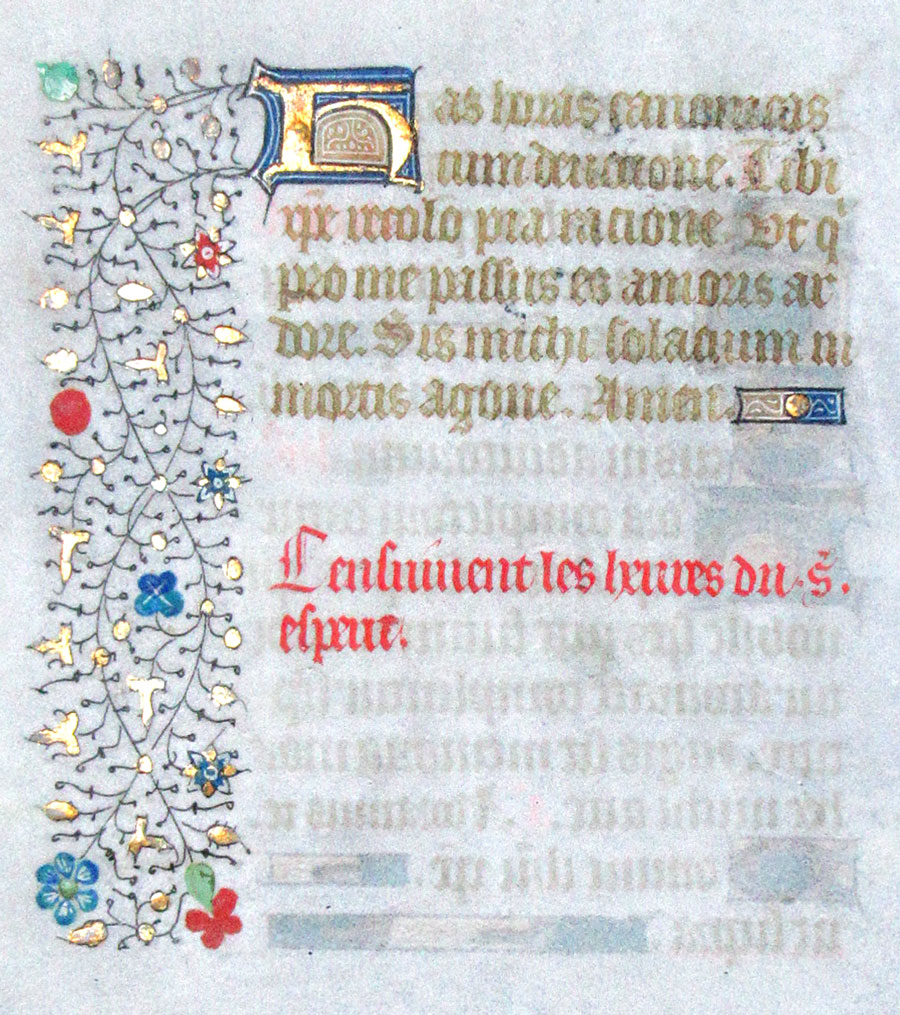 Has horas canonicas
cum deuocione. Tibi
xp̄e recolo pia racione. Vt qͥ
pro me passus es amoris ar
dore. Sis michi solacium in
mortis agone. Amen.
Censuiuent les heures du .s̄.
esperit.